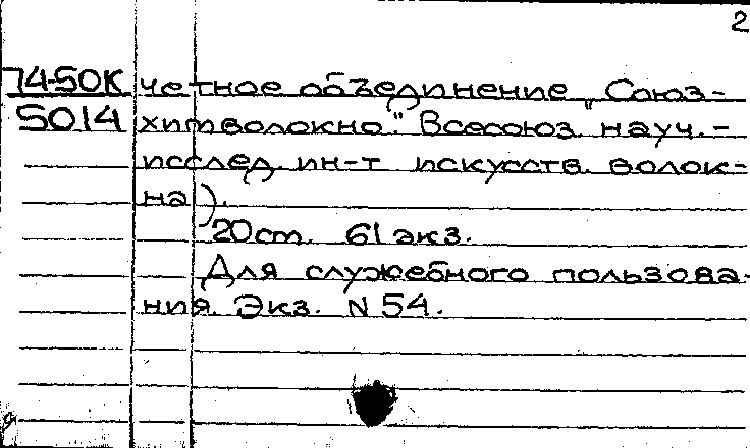 2
74-50К четное объединение „Союз-
5014 химволокно". Всесоюз. науч.-
исслед. ин-т искусств. волок-
на).
20 ст. 61 экз.
Для служебного пользова-
ния. Экз. N 54.